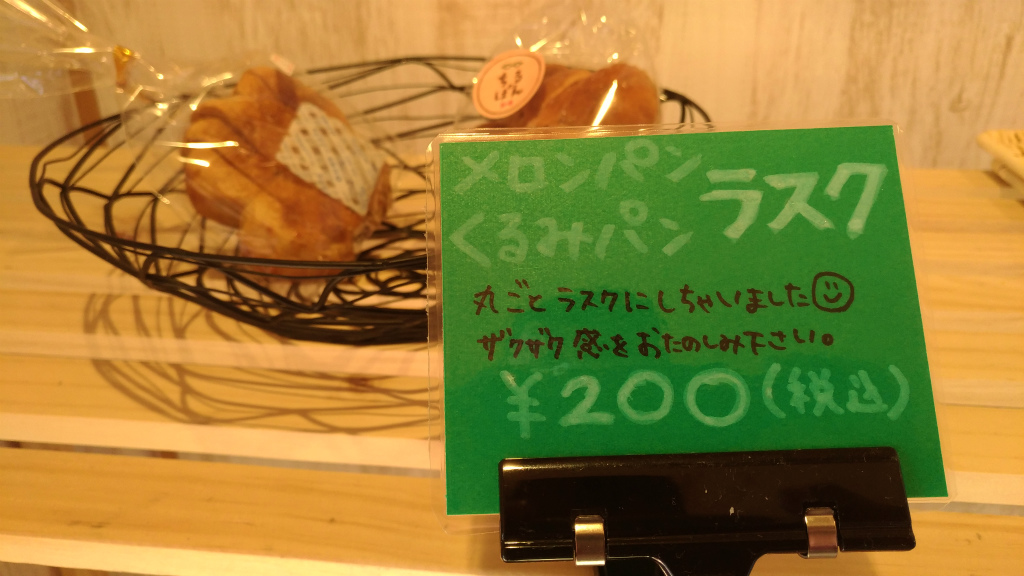 メロンパン
くるみパン
ラスク
丸ごとラスクにしちゃいました
ザクザク感をおたのしみ下さい。
¥200(税込)